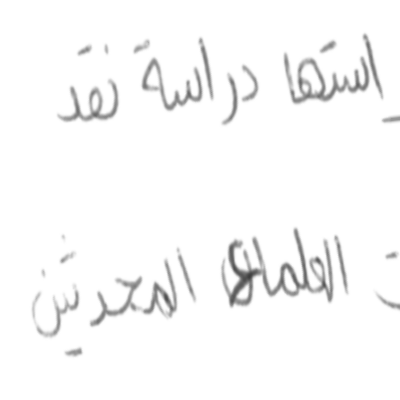 استها دراسة نقد
العلماء المحدثين